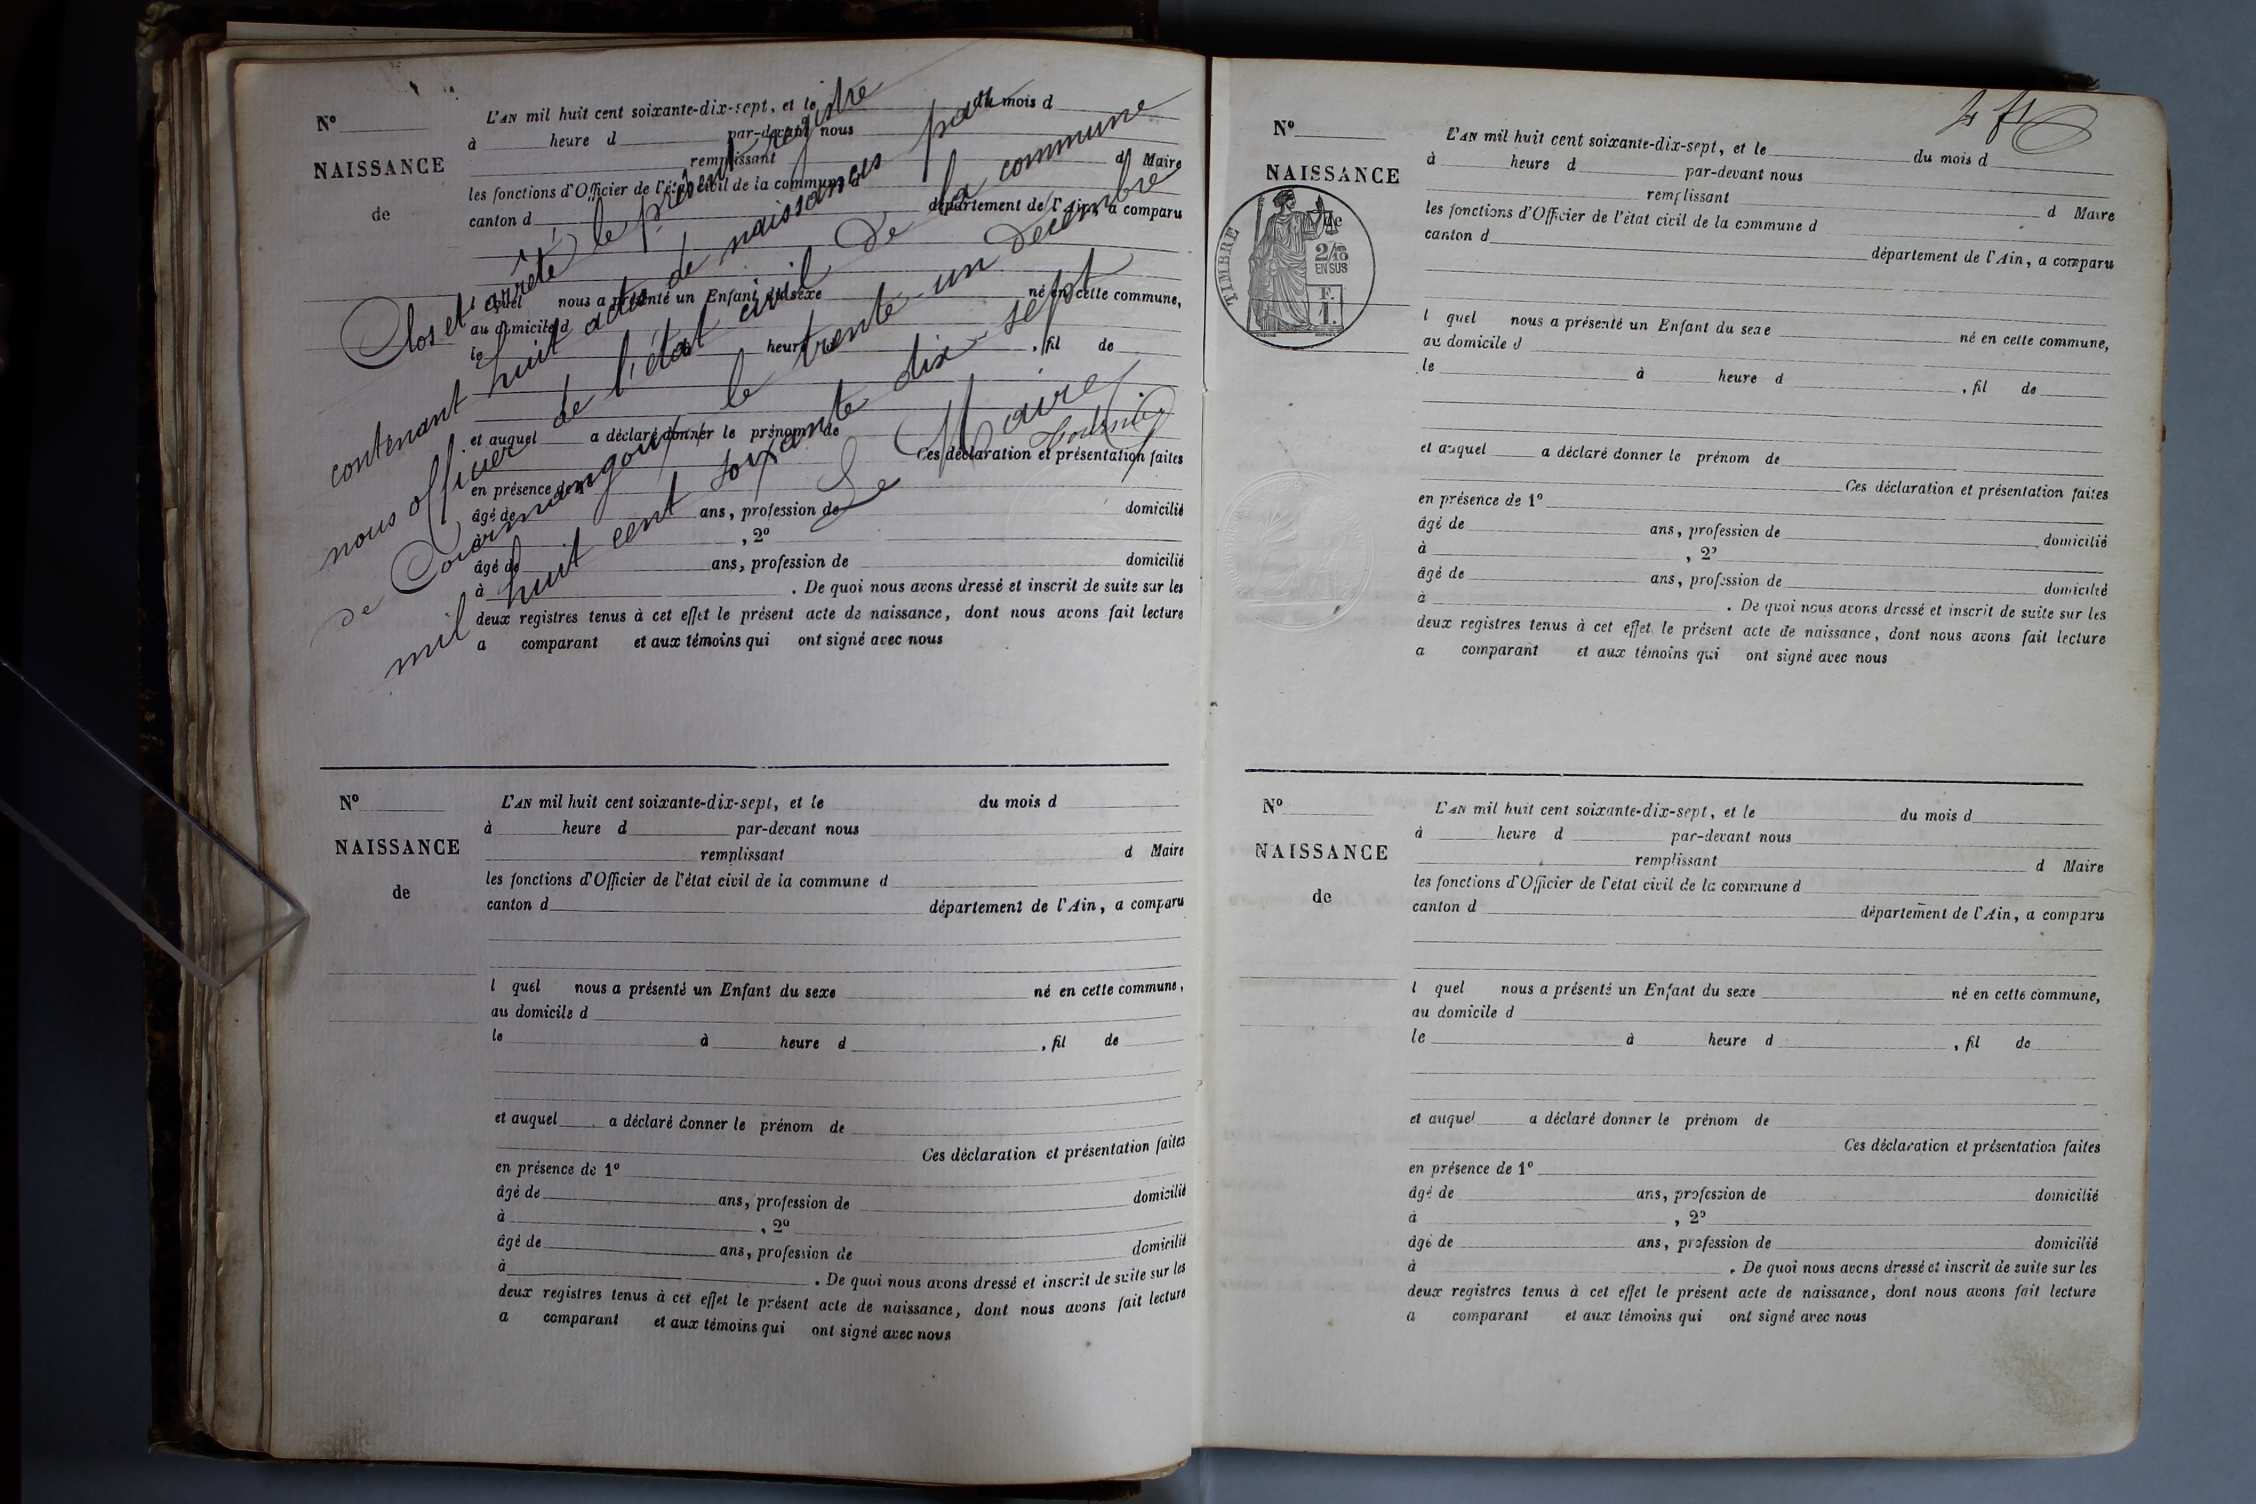 Nº
NAISSANCE
de
L'AN mil huit cent soixante-dix-sept, et le du mois d
à heure d par-devant nous
remplissant d Maire
les fonctions d'Officier de l'état civil de la commune d
canton d département de l'Ain, a comparu
l quel nous a présenté un Enfant du sexe né en cette commune,
au domicile d
le à heure d , fil de
et auquel a déclaré donner le prénom de
Ces déclaration et présentation faites
en présence de 1º
âgé de ans, profession de domicilié
à , 2º
âgé de ans, profession de domicilié
à . De quoi nous avons dressé et inscrit de suite sur les
deux registres tenus à cet effet le présent acte de naissance, dont nous avons fait lecture
a comparant et aux témoins qui ont signé avec nous
Clos et arrêté le présent registre
contenant huit actes de naissances par
nous officier de l'état civil de la commune
de Cormangoux le trente-un décembre
mil huit cent soixante dix-sept
Le Maire
Nº
NAISSANCE
de
L'AN mil huit cent soixante-dix-sept, et le du mois d
à heure d par-devant nous
remplissant d Maire
les fonctions d'Officier de l'état civil de la commune d
canton d département de l'Ain, a comparu
l quel nous a présenté un Enfant du sexe né en cette commune,
au domicile d
le à heure d , fil de
et auquel a déclaré donner le prénom de
Ces déclaration et présentation faites
en présence de 1º
âgé de ans, profession de domicilié
à , 2º
âgé de ans, profession de domicilié
à . De quoi nous avons dressé et inscrit de suite sur les
deux registres tenus à cet effet le présent acte de naissance, dont nous avons fait lecture
a comparant et aux témoins qui ont signé avec nous
Nº
NAISSANCE
de
TIMBRE
2/10
EN SUS
F.
1.
L'AN mil huit cent soixante-dix-sept, et le du mois d
à heure d par-devant nous
remplissant d Maire
les fonctions d'Officier de l'état civil de la commune d
canton d département de l'Ain, a comparu
l quel nous a présenté un Enfant du sexe né en cette commune,
au domicile d
le à heure d , fil de
et auquel a déclaré donner le prénom de
Ces déclaration et présentation faites
en présence de 1º
âgé de ans, profession de domicilié
à , 2º
âgé de ans, profession de domicilié
à . De quoi nous avons dressé et inscrit de suite sur les
deux registres tenus à cet effet le présent acte de naissance, dont nous avons fait lecture
a comparant et aux témoins qui ont signé avec nous
Nº
NAISSANCE
de
L'AN mil huit cent soixante-dix-sept, et le du mois d
à heure d par-devant nous
remplissant d Maire
les fonctions d'Officier de l'état civil de la commune d
canton d département de l'Ain, a comparu
l quel nous a présenté un Enfant du sexe né en cette commune,
au domicile d
le à heure d , fil de
et auquel a déclaré donner le prénom de
Ces déclaration et présentation faites
en présence de 1º
âgé de ans, profession de domicilié
à , 2º
âgé de ans, profession de domicilié
à . De quoi nous avons dressé et inscrit de suite sur les
deux registres tenus à cet effet le présent acte de naissance, dont nous avons fait lecture
a comparant et aux témoins qui ont signé avec nous